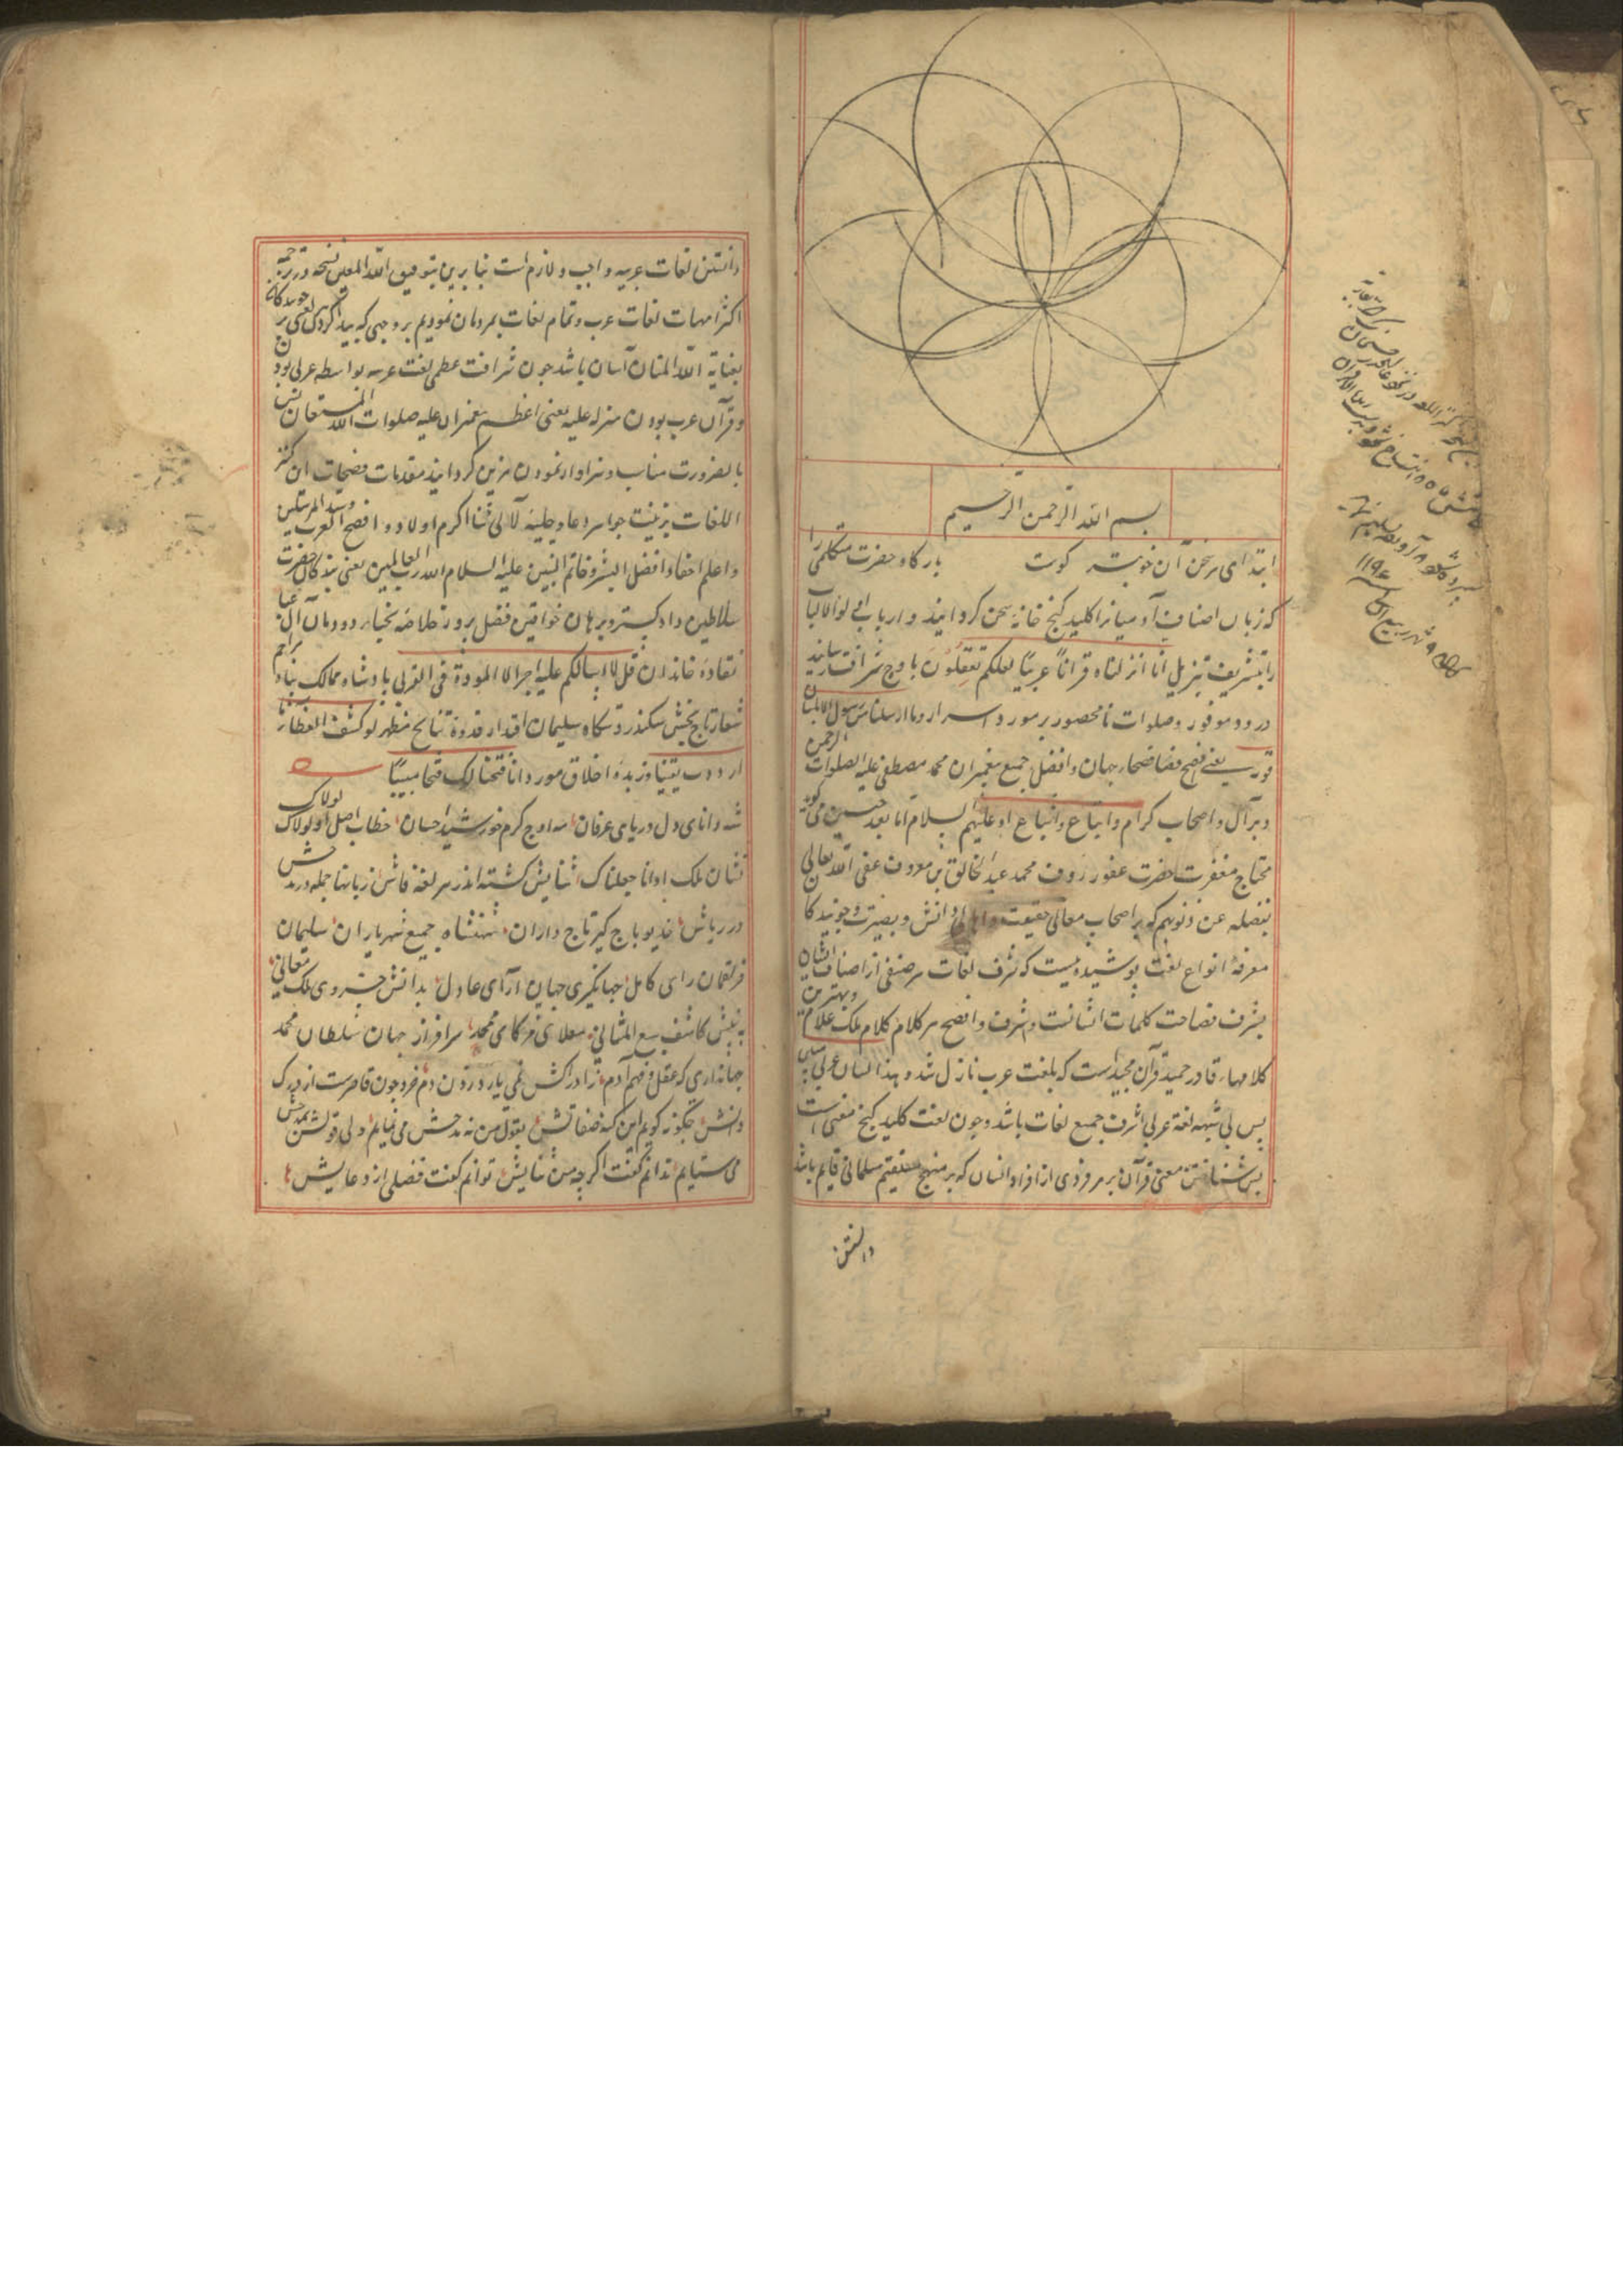 بسم الله الرحمن الرحیم
ابتدای هر سخن آن خوبتر کوست بارکاه حضرت متکلمی را
که زبان اصناف آدمیانرا کلید کنج خانه سخن کردانید و ارباب اولوالالباب
را بتشریف تنزیل انا انزلناه قرآنا عربیا لعلکم تعقلون باوج شرافت رسانید
درود موفور و صلوات نامحصور بر مورد اسرار وما ارسلنا من رسول الا بلسان
قومه یعنی افصح فصحاء جهان و افضل جمیع پیغمبران محمد مصطفی علیه الصلوات الرحمن
و بر آل و اصحاب کرام و اتباع و اشیاع او علیهم السلام اما بعد چنین می کوید
محتاج مغفرت حضرت غفور رؤف محمد عبد الخالق بن معروف عفی الله تعالی
بفضله عن ذنوبهم که بر اصحاب معالی حقیقت و اهالی دانش و بصیرت و جویندکا
معرفة انواع لغت پوشیده نیست که شرف لغات هر صنفی از اصناف انسان
بشرف فصاحت کلمات ایشانست و اشرف و افصح هر کلام کلام ملک علام و بهترین
کلامها قادر حمید قرآن مجید است که بلغت عرب نازل شد و بهذا لسان عربی مبین
پس بی شبهه لغة عربی اشرف جمیع لغات باشد و چون لغت کلید کنج معنی است
پس شناختن معنی قرآن بر هر فردی از افراد انسان که بر منهج مستقیم مسلمانی قایم باشد
دانستن
دانستن لغات عربیه واجب و لازم است بنابرین بتوفیق الله المعین نسخه در ترجمه
اکثر امهات لغات عرب و تمام لغات بمردمان نمودیم بر وجهی که پیدا کردن لغتی بر جویندکان
بعنایة الله المنان آسان باشد چون شرافت عظمی لغت عربیه بواسطه عربی بودن
و قرآن عرب بودن منزله علیه یعنی اعظم پیغمبران علیه صلوات الله المستعان
بالضرورت مناسب و سزاوار نمودن مزین کردانیدن مقدمات صفحات این کنز
اللغات بزینت جواهر دعا و حلیه لآلی ثنا اکرم اولاد و افصح العرب و سید المرسلین
و اعلم احفاد افضل البشر و خاتم النبیین علیه السلام الله رب العالمین یعنی بندکان حضرت
سلاطین دادکستر و برهان خواقین فضل پرور خلاصه نخبه دودمان آل عبا
نقاده خاندان قل لا اسالکم علیه اجرا الا المودة فی القربی پادشاه ممالک پناه
شعار تاج بخش سکندر دستکاه سلیمان اقتدار قدوة نتایج مظهر لو کشف الغطاء
ازددت یقینا و زبدة اخلاق مورد انا فتحنا لک فتحا مبینا
شه دانای دل دریای عرفان مه اوج کرم خورشید احسان خطاب اصل او لولاک لولاک
نشان ملک او انا جعلناک ثنایش کشته اندر هر لغة فاش زبانها جمله در مدحش
درر پاش خدیو باج کیر تاج داران شهنشاه جمیع شهریاران سلیمان
فر لقمان رای کامل جهانکیری جهان آرای عادل بدانش خسروی ملک معانی
به بینش کاشف سبع المثانی معلای فرکامی محمد سرافراز جهان سلطان محمد
جهانداری که عقل و فهم آدم ز ادراکش نمی یارد زدن دم خرد چون قاصرست از درک
دانش چکونه کویم این کنه صفاتش بقول من نه مدحش می نمایم ولی قولش بمدحش
می ستایم ندانم کفت اکر چه من ثنایش توانم کفت فصلی از دعایش